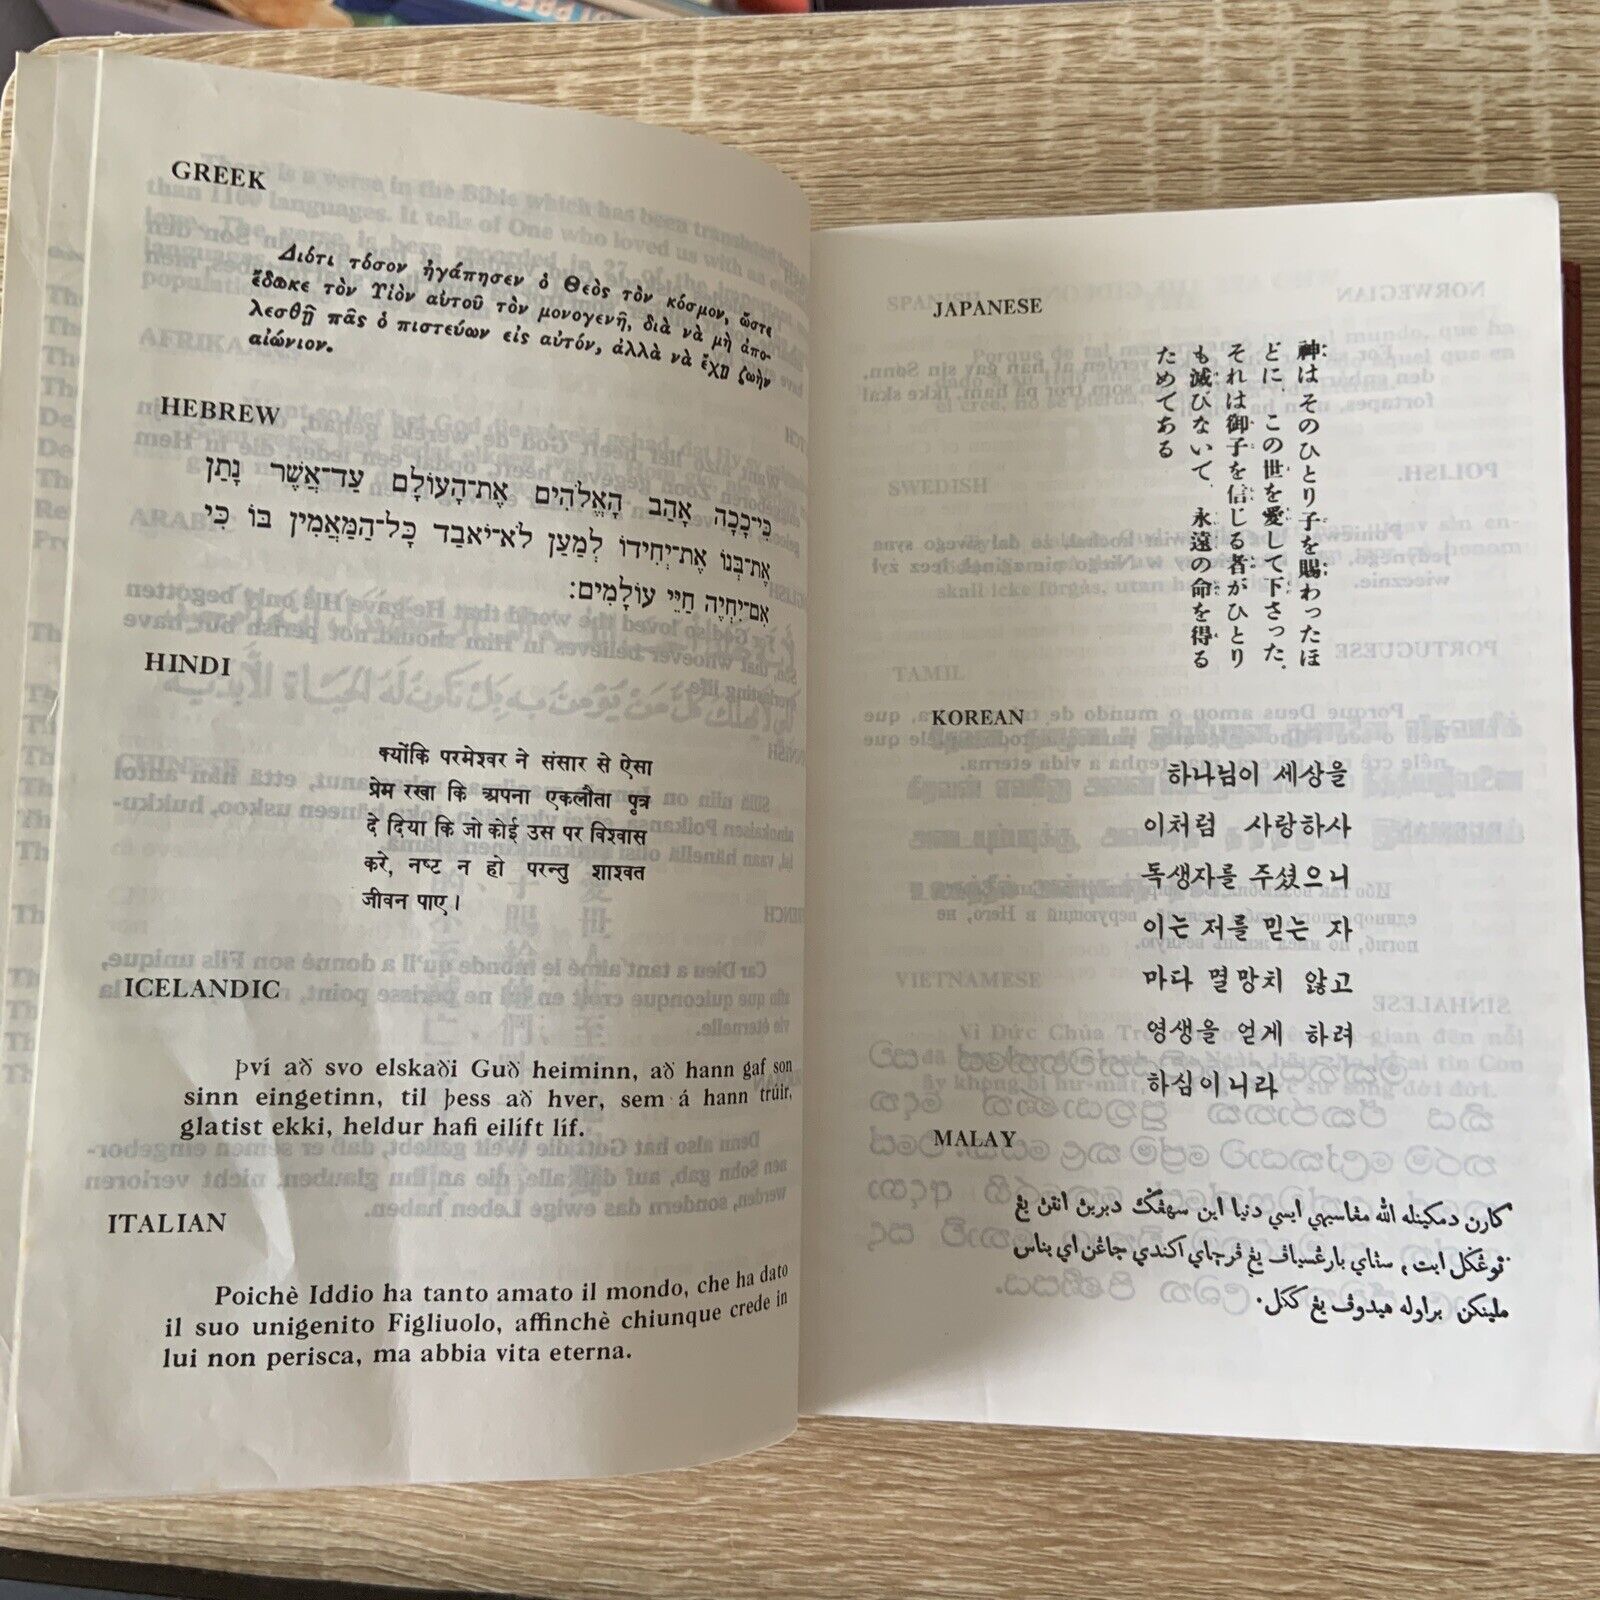 GREEK
Διότι τόσον ἠγάπησεν ὁ Θεὸς τὸν κόσμον, ὥστε
ἔδωκε τὸν Υἱὸν αὑτοῦ τὸν μονογενῆ, διὰ νὰ μὴ ἀπο-
λεσθῇ πᾶς ὁ πιστεύων εἰς αὐτόν, ἀλλὰ νὰ ἔχῃ ζωὴν
αἰώνιον.
HEBREW
כִּי־כָכָה אָהַב הָאֱלֹהִים אֶת־הָעוֹלָם עַד־אֲשֶׁר נָתַן
אֶת־בְּנוֹ אֶת־יְחִידוֹ לְמַעַן לֹא־יֹאבַד כָּל־הַמַּאֲמִין בּוֹ כִּי
אִם־יִחְיֶה חַיֵּי עוֹלָמִים׃
HINDI
क्योंकि परमेश्वर ने संसार से ऐसा
प्रेम रखा कि अपना एकलौता पुत्र
दे दिया कि जो कोई उस पर विश्वास
करे, नष्ट न हो परन्तु शाश्वत
जीवन पाए।
ICELANDIC
Því að svo elskaði Guð heiminn, að hann gaf son
sinn eingetinn, til þess að hver, sem á hann trúir,
glatist ekki, heldur hafi eilíft líf.
ITALIAN
Poichè Iddio ha tanto amato il mondo, che ha dato
il suo unigenito Figliuolo, affinchè chiunque crede in
lui non perisca, ma abbia vita eterna.
JAPANESE
神はそのひとり子を賜わったほ
どに、この世を愛して下さった。
それは御子を信じる者がひとり
も滅びないで、永遠の命を得る
ためである
KOREAN
하나님이 세상을
이처럼 사랑하사
독생자를 주셨으니
이는 저를 믿는 자
마다 멸망치 않고
영생을 얻게 하려
하심이니라
MALAY
كارن دمكينله الله مڠاسيهي ايسي دنيا اين سهڠݢ دبرين انقڽ يڠ
توڠݢل ايت، سڤاي بارڠسياڤ يڠ ڤرچاي اكندي جاڠن اي بناس
ملينكن براوله هيدوڤ يڠ ككل.